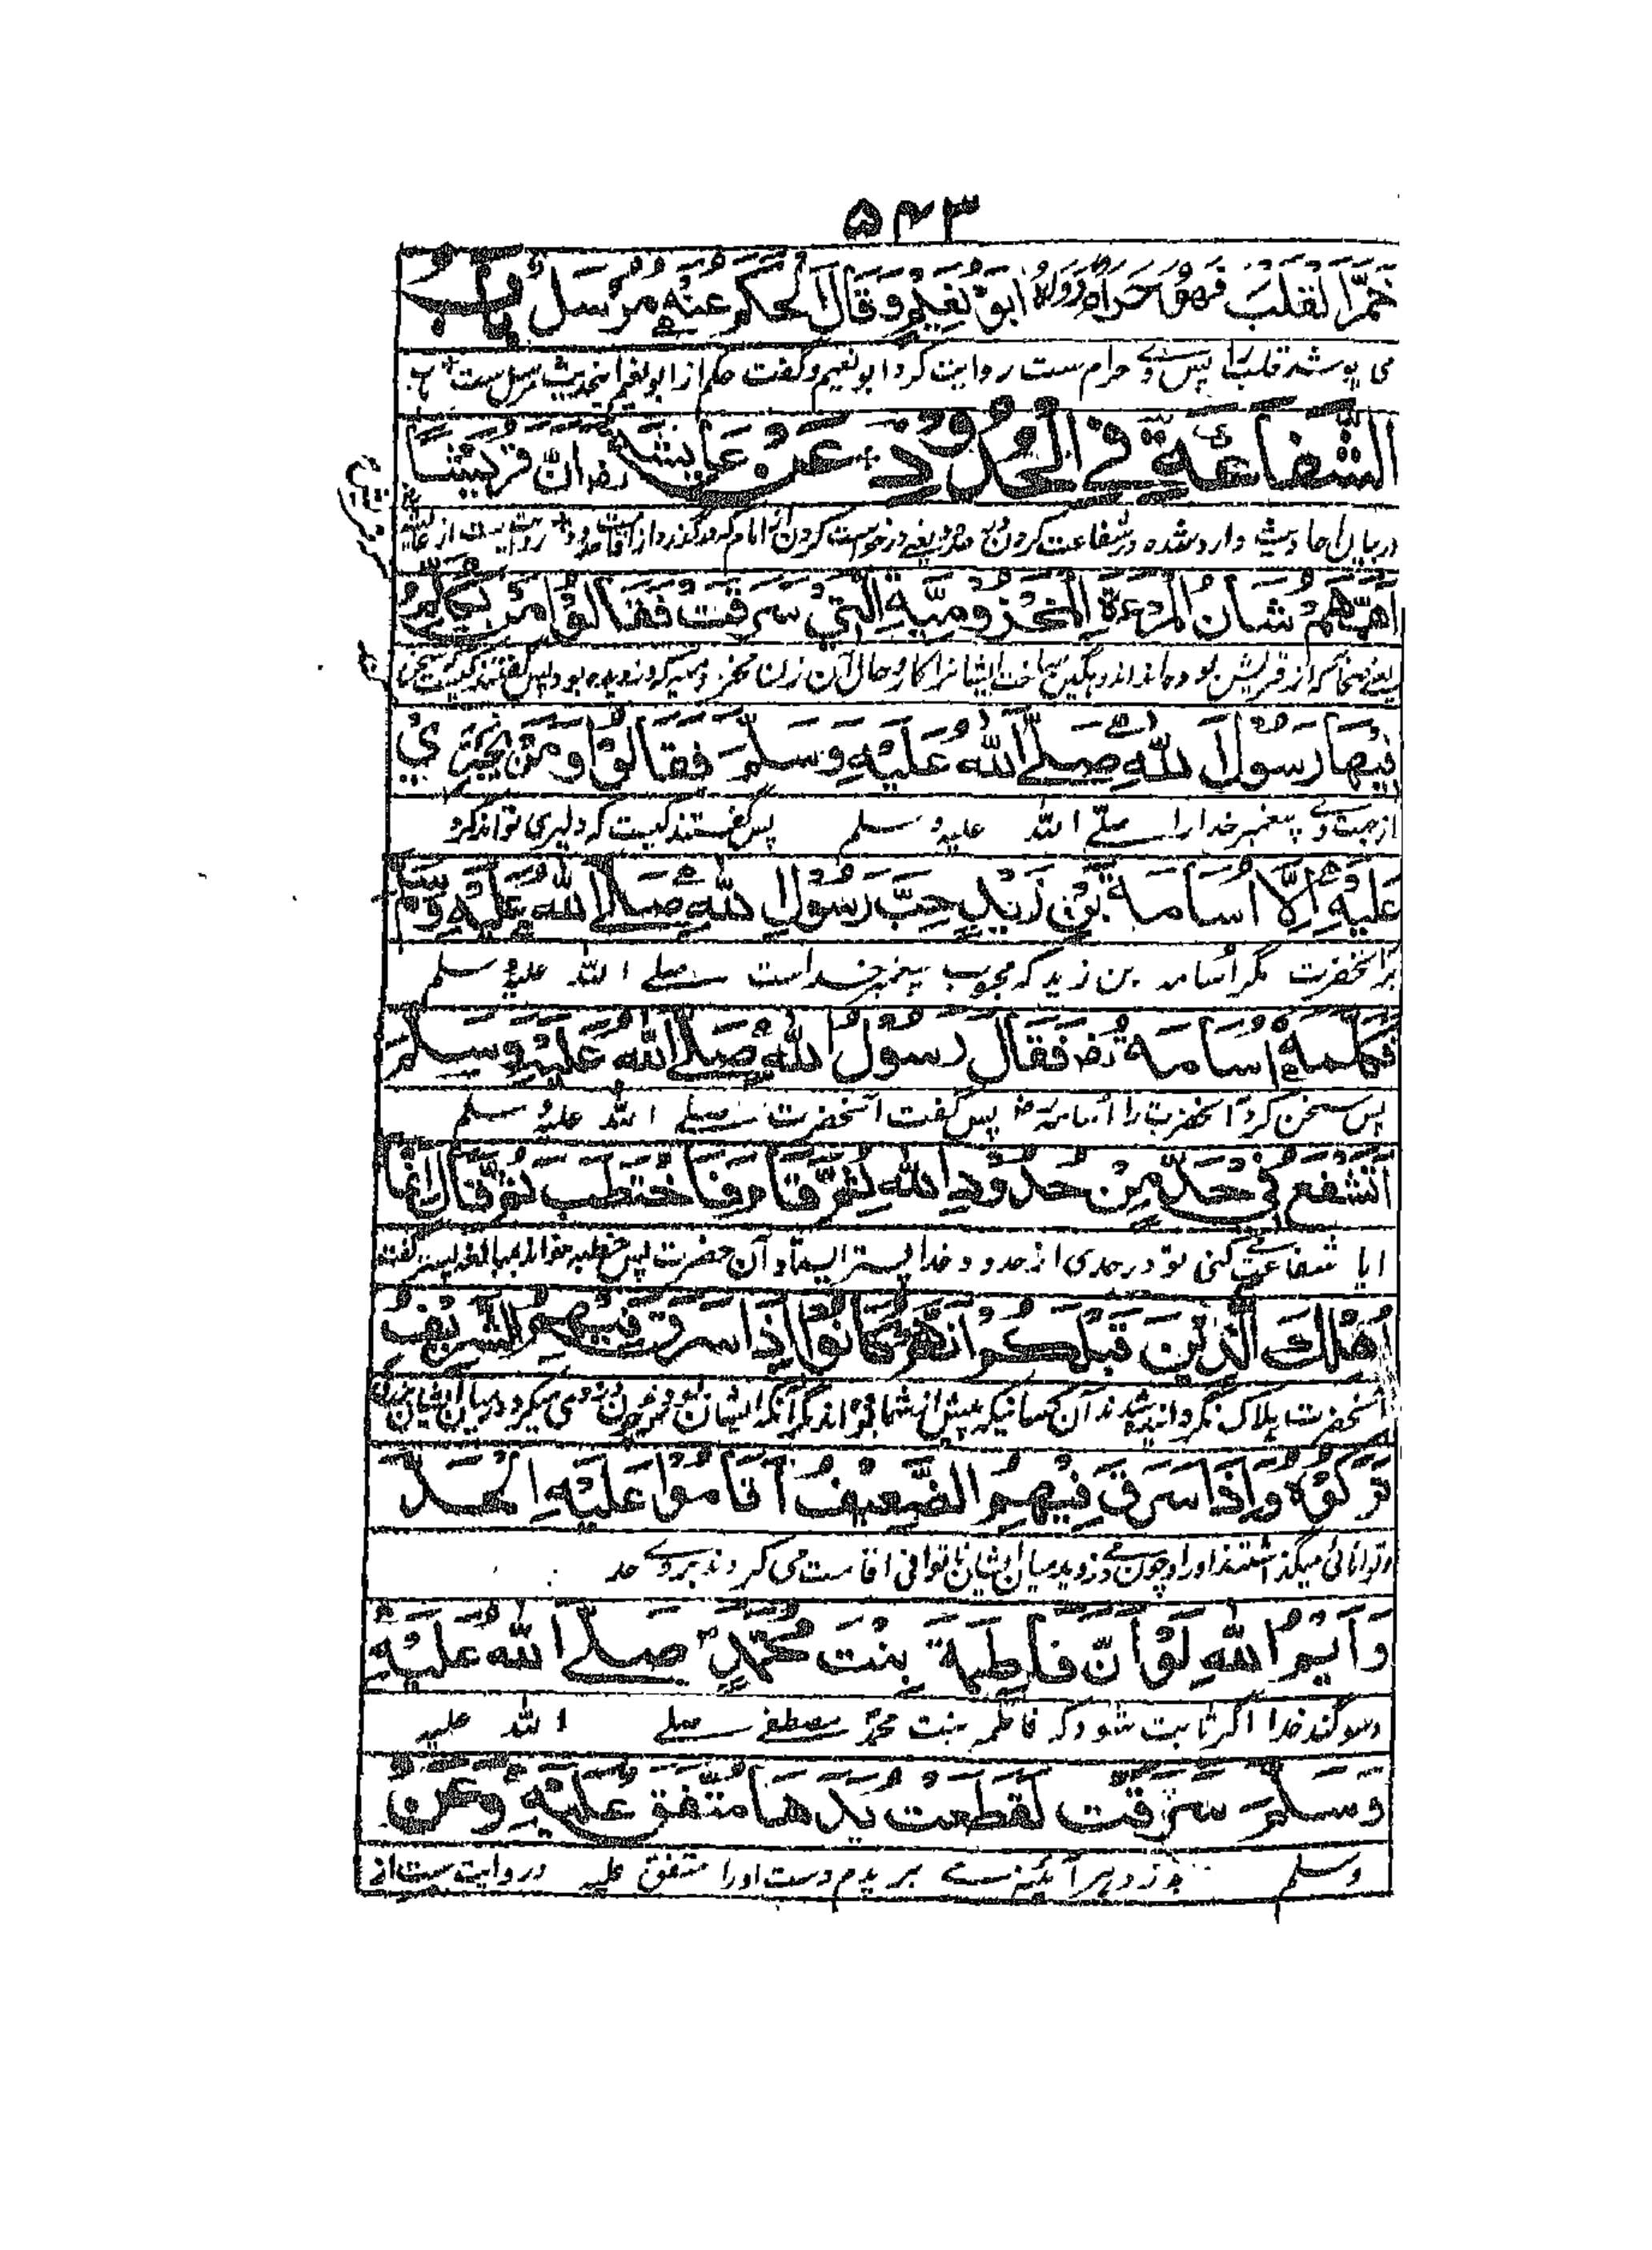 ۵۴۳
خَمَّرَ الْقَلْبَ فَهُوَ حَرَامٌ رَوَاهُ اَبُوْ نُعَيْمٍ وَقَالَ الْحَكَمُ عَنْهُ مُرْسَلٌ بَابُ
می پوشد قلب را پس وے حرام ست روایت کرد ابونعیم وگفت حکم از ابونعیم اینحدیث مرسل ست
الشَّفَاعَةِ فِي الْحُدُوْدِ عَنْ عَايِشَةَ رض اَنَّ قُرَيْشًا
در بیان احادیث وارد شده در شفاعت کردن در حدود یعنے درخواست کردن از امام که درگذرد از اقامت حدود روایت ست از عایشه
اَهَمَّهُمْ شَانُ الْمَرْءَةِ الْمَخْزُوْمِيَّةِ الَّتِيْ سَرَقَتْ فَقَالُوْا مَنْ يُكَلِّمُ
از قریش بود در اندوهگین ساخت ایشانرا کار و حال آن زن مخزومیه که دزدیده بود پس گفتند کیست که سخن
فِيْهَا رَسُوْلَ اللّٰهِ صَلَّے اللّٰهُ عَلَيْهِ وَسَلَّمَ فَقَالُوْا وَمَنْ يَجْتَرِيُ
از جهت وے پیغمبر خدا را صلے اللّٰه علیه وسلم پس گفتند کیست که دلیری تواند کرد
عَلَيْهِ اِلَّا اُسَامَةُ بْنُ زَيْدٍ حِبُّ رَسُوْلِ اللّٰهِ صَلَّے اللّٰهُ عَلَيْهِ وَسَلَّمَ
بر آنحضرت مگر اُسامه بن زید که محبوب پیغمبر خداست صلے اللّٰه علیه وسلم
فَكَلَّمَهٗ اُسَامَةُ رض فَقَالَ رَسُوْلُ اللّٰهِ صَلَّے اللّٰهُ عَلَيْهِ وَسَلَّمَ
پس سخن کرد آنحضرت را اُسامه رض پس گفت آنحضرت صلے اللّٰه علیه وسلم
اَتَشْفَعُ فِيْ حَدٍّ مِّنْ حُدُوْدِ اللّٰهِ ثُمَّ قَامَ فَاخْتَطَبَ ثُمَّ قَالَ اِنَّمَا
ایا شفاعت کنی تو در حدی از حدود خدا پستر ایستاد آن حضرت پس خطبه خواند بمبالغه پستر گفت
اَهْلَكَ الَّذِيْنَ قَبْلَكُمْ اَنَّهُمْ كَانُوْا اِذَا سَرَقَ فِيْهِمُ الشَّرِيْفُ
آنحضرت هلاک نگردانیده شدند آن کسانیکه پیش از شما بودند مگر آنکه ایشان بودند چون دزدی میکرد در میان ایشان بزرگ
تَرَكُوْهُ وَاِذَا سَرَقَ فِيْهِمُ الضَّعِيْفُ اَقَامُوْا عَلَيْهِ الْحَدَّ
و توانائی میگذاشتند اورا و چون مے دزدید میان ایشان ناتوانی اقامت می کردند بروے حد
وَاَيْمُ اللّٰهِ لَوْ اَنَّ فَاطِمَةَ بِنْتَ مُحَمَّدٍ صَلَّے اللّٰهُ عَلَيْهِ
وسوگند خدا اگر ثابت شود که فاطمه بنت محمد مصطفے صلے اللّٰه علیه
وَسَلَّمَ سَرَقَتْ لَقَطَعْتُ يَدَهَا مُتَّفَقٌ عَلَيْهِ وَعَنْ
وسلم دزدد هر آئینه بریدم دست اورا متفق علیه در روایت ست از